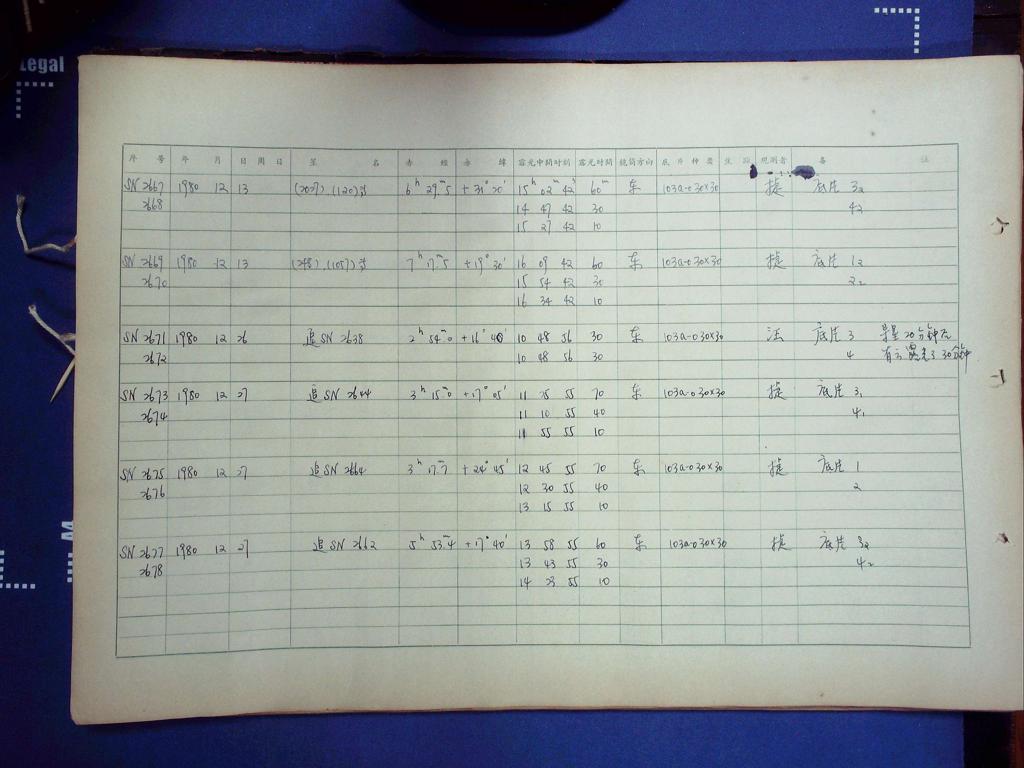 Legal
序 号 年 月 日 周 日 星 名 赤 经 赤 纬 露光中间时刻 露光时间 镜筒方向 底 片 种 类 观测者 备 注
SN 2667 1980 12 13 (2027), (1120) 6h 29m5 +31° 20' 15h 02m 42s 60m 东 103a-0 30×30 捷 底片 32
2668 14 47 42 30 42
15 27 42 10
SN 2669 1980 12 13 (248), (1057) 7h 17m5 +19° 30' 16 09 42 60 东 103a-0 30×30 捷 底片 12
2670 15 54 42 30 22
16 34 42 10
SN 2671 1980 12 26 追SN 2638 2h 54m0 +16° 40' 10 48 56 30 东 103a-0 30×30 汪 底片 3 导星 20分钟后
2672 10 48 56 30 4 有云 露光了 30分钟
SN 2673 1980 12 27 追SN 2644 3h 15m0 +17° 05' 11 25 55 70 东 103a-0 30×30 捷 底片 31
2674 11 10 55 40 41
11 55 55 10
SN 2675 1980 12 27 追SN 2664 3h 17m7 +24° 45' 12 45 55 70 东 103a-0 30×30 捷 底片 1
2676 12 30 55 40 2
13 15 55 10
SN 2677 1980 12 27 追SN 2662 5h 53m4 +17° 40' 13 58 55 60 东 103a-0 30×30 捷 底片 32
2678 13 43 55 30 42
14 23 55 10